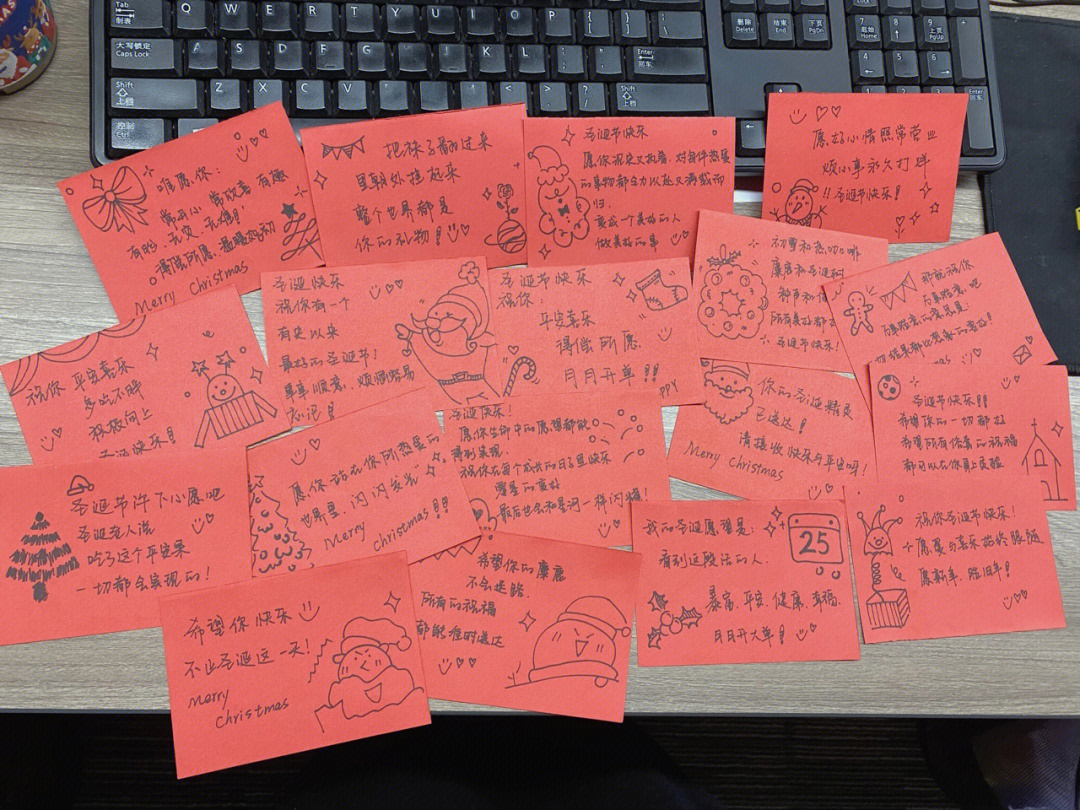 Tab
制表
Q W E R T Y U I O P
删除
Delete
结束
End
下页
PgDn
7
起始
Home
8
9
上页
PgUp
大写锁定
Caps Lock
A S D F G H J K L
Enter
回车
4
5
6
Shift
上档
Z X C V B N M
Shift
上档
控制
Ctrl
回车
唯愿你:
常开心 常欣喜 有趣
有盼 无灾 无难!
得偿所愿
Merry Christmas
把袜子翻过来
里朝外挂起来
整个世界都是
你的礼物!
圣诞节快乐
愿你温柔又执着,对每件热爱
的事物都全力以赴又满载而
归.
变成一个美好的人
做美好的事
愿好心情照常营业
烦心事永久打烊
!! 圣诞节快乐!
祝你 平安喜乐
多吃不胖
积极向上
圣诞快乐!
圣诞快乐
祝你有一个
有史以来
最好的圣诞节!
事事顺意, 烦恼容易
忘记!
圣诞节快乐
祝你:
平安喜乐
得偿所愿
月月开单!!
初雪和热咖啡
麋鹿和圣诞树
所有美好都
圣诞节快乐!
那就祝你
万事胜意 吧
万事胜意的意思是:
圣诞节许下小愿吧
圣诞老人说
吃了这个平安果
一切都会实现的!
愿你站在你所热爱的
世界里,闪闪发光
Merry Christmas!!!
圣诞快乐!
愿你生命中的愿望都能
得到实现.
祝你在每个成长的日子里快乐
最后也会和星河一样闪耀!
PPY
你的圣诞精灵
已送达!
请接收快乐与平安呀!
Merry Christmas
圣诞节快乐!!
希望你的一切都好
希望所有信奉的祝福
都可以在你身上灵验
希望你快乐
不止圣诞这一天!
Merry
Christmas
希望你的麋鹿
不会迷路.
所有的祝福
都能准时送达
我的圣诞愿望是:
看到这段话的人.
暴富、平安、健康、幸福.
月月开大单!
25
祝你圣诞节快乐!
愿爱与喜乐始终陪随
愿新年, 胜旧年!